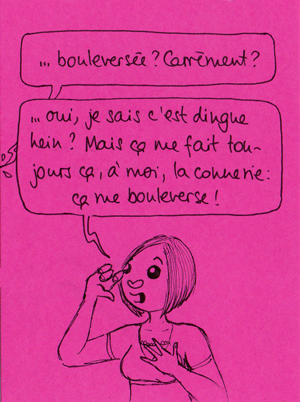 ... bouleversée ? Carrément ?
... oui, je sais c'est dingue
hein ? Mais ça me fait tou-
jours ça, à moi, la connerie :
ça me bouleverse !